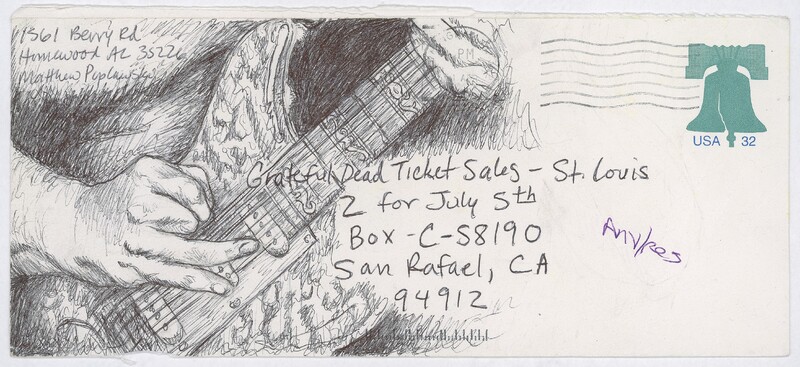 1361 Berry Rd
Homewood AL 35226
Matthew Poplawski
PM
USA 32
Grateful Dead Ticket Sales - St. Louis
2 for July 5th
Box - C-S8190
San Rafael, CA
94912